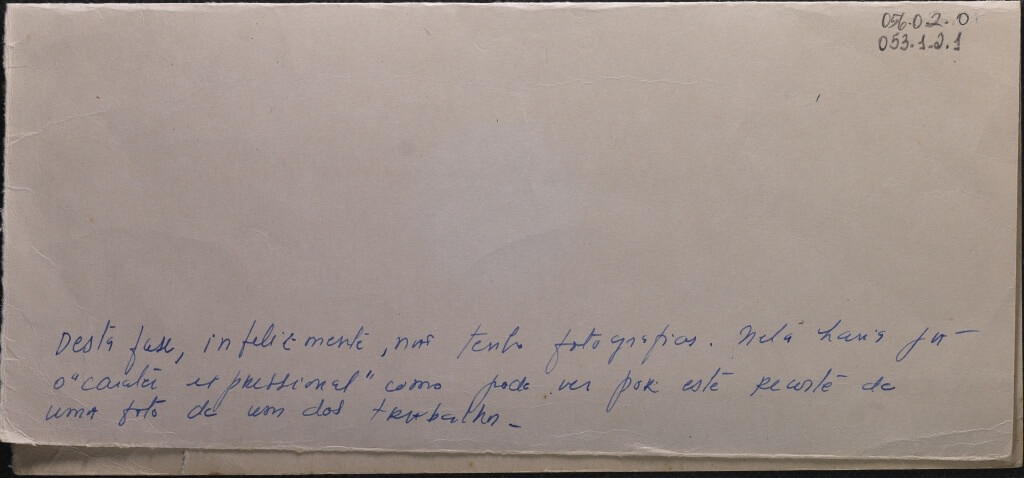 056.0.2.0
053.1.2.1
Desta fase, infelizmente, não tenho fotografias. Nela havia já
o "caráter expressional" como pode ver por este recorte de
uma foto de um dos trabalhos.